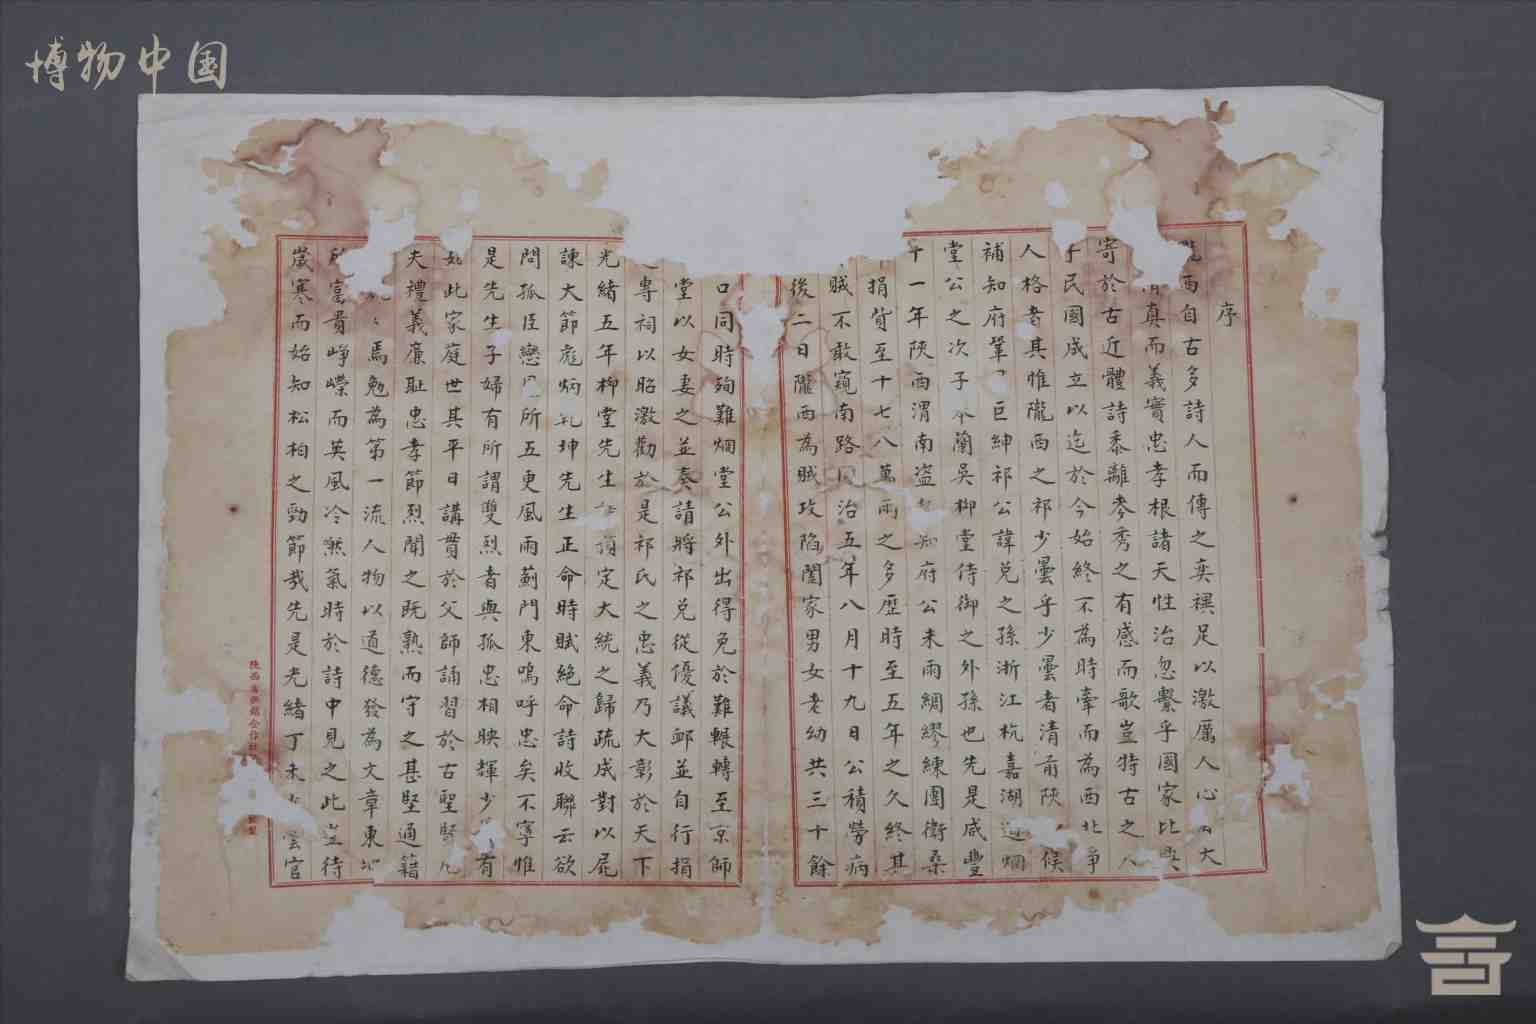 博物中国
序
西自古多詩人而傳之奕禩足以激厲人心大
真而義實忠孝根諸天性治忽繫乎國家比
寄於古近體詩黍離麥秀之有感而歌豈特古之
民國成立以迄於今始終不為時牽而為西北爭
人格者其惟隴西之祁少曇乎少曇者清前陝候
補知府鞏巨紳祁公諱兌之孫浙江杭嘉湖道烱
堂公之次子蘭吳柳堂侍御之外孫也先是咸豐
十一年陝西渭南盜知府公未雨綢繆練團衛桑
捐貲至十七八萬兩之多歷時至五年之久終其
賊不敢窺南路治五年八月十九日公積勞病
後二日隴西為賊攻陷闔家男女老幼共三十餘
口同時殉難烱堂公外出得免於難輾轉至京師
堂以女妻之並奏請將祁兌從優議䘏並自行捐
專祠以昭激勸於是祁氏之忠義乃大彰於天下
光緒五年柳堂先生定大統之歸疏成對以屍
諫大節彪炳乾坤先生正命時賦絕命詩收聯云欲
問孤臣戀所五更風雨薊門東嗚呼忠矣不寧惟
是先生子婦有所謂雙烈者與孤忠相映輝少有
如此家庭世其平日講貫於父師誦習於古聖賢
夫禮義廉耻忠孝節烈聞之既熟而守之甚堅通籍
焉勉為第一流人物以道德發為文章東
富貴崢嶸而英風冷然氣時於詩中見之此豈待
歲寒而始知松柏之勁節哉先是光緒丁未少雲官
陝西省供銷合作社